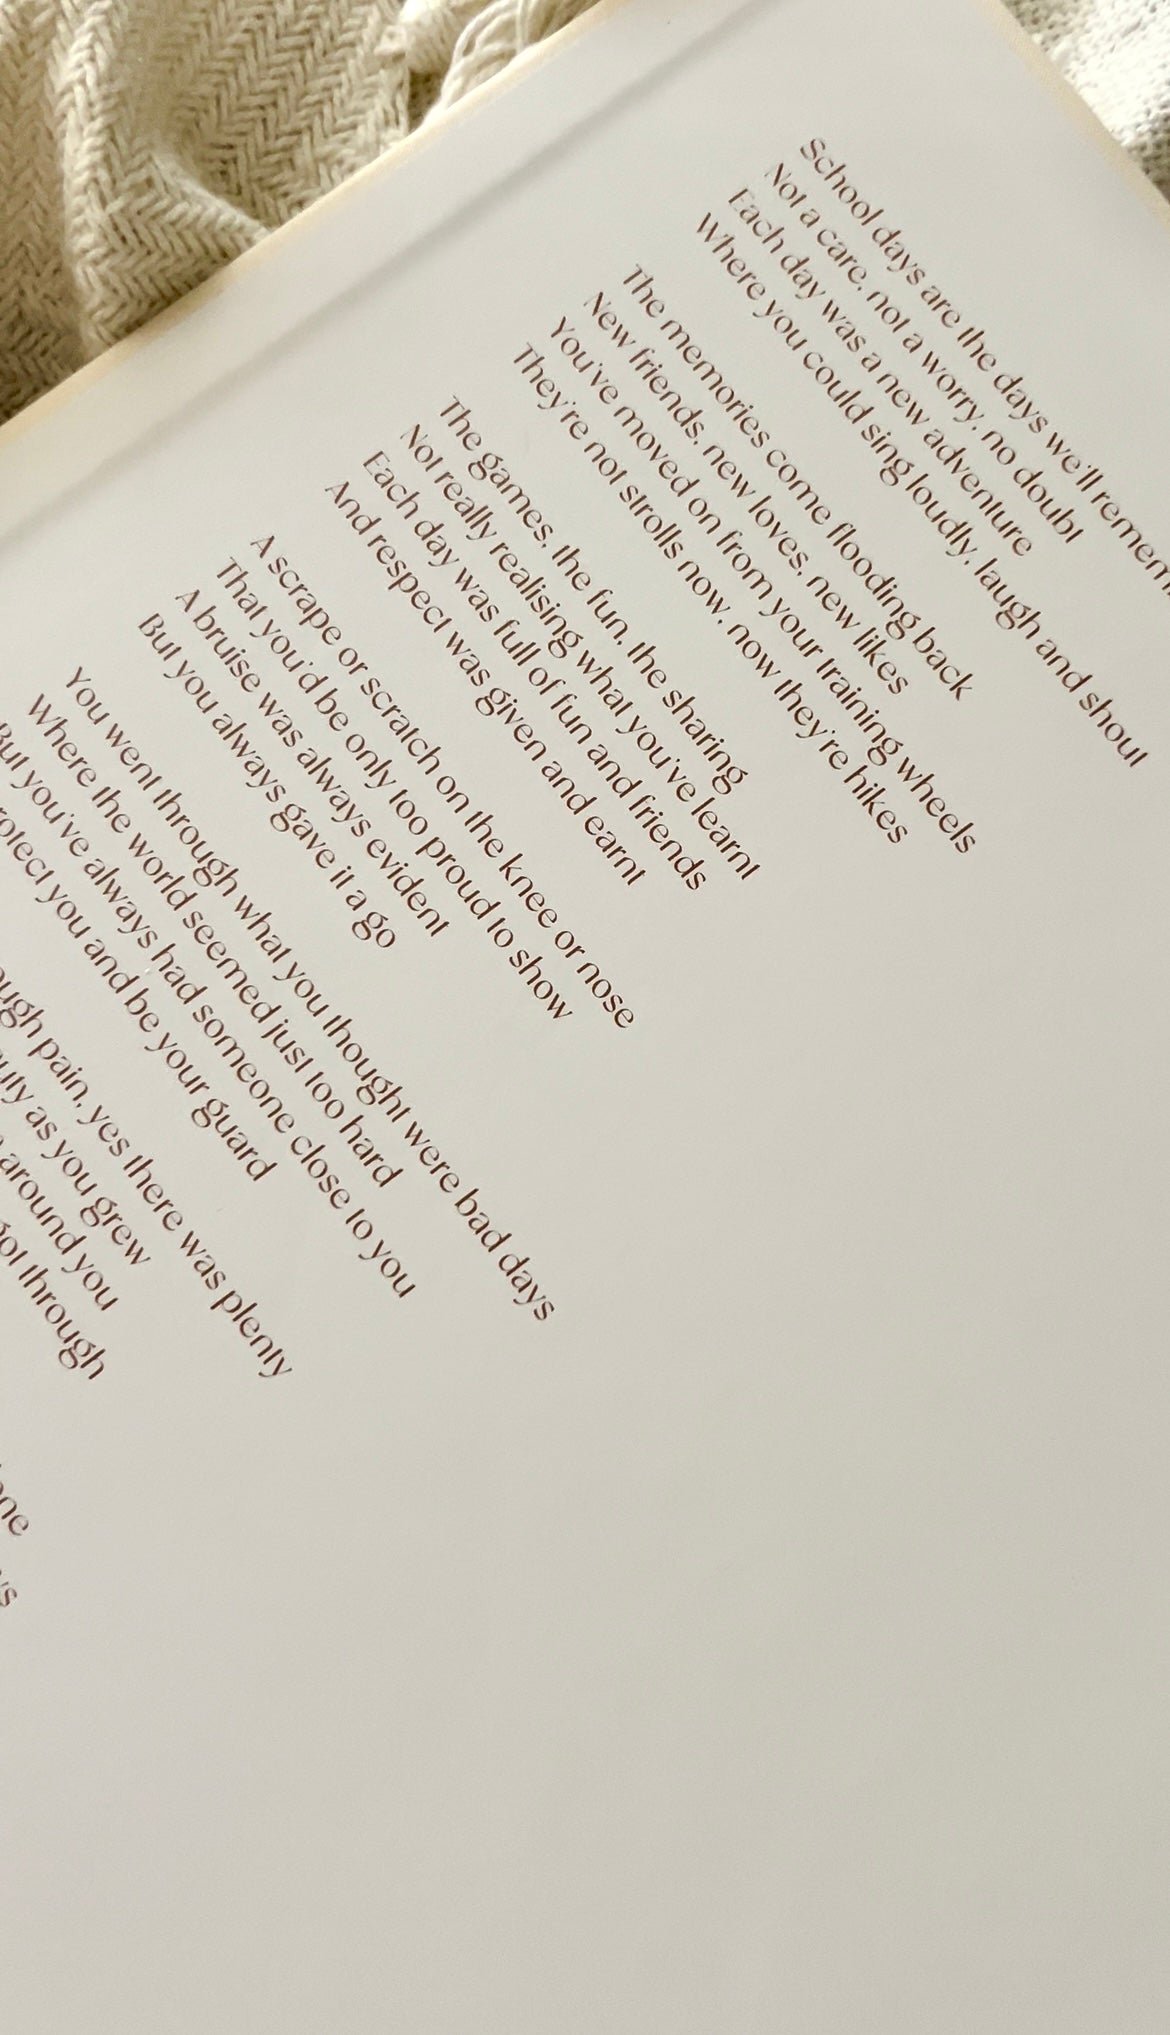 School days are the days we'll
Not a care, not a worry, no doubt
Each day was a new adventure
Where you could sing loudly, laugh and shout
The memories come flooding back
New friends, new loves, new likes
You've moved on from your training wheels
They're not strolls now, now they're hikes
The games, the fun, the sharing
Not really realising what you've learnt
Each day was full of fun and friends
And respect was given and earnt
A scrape or scratch on the knee or nose
That you'd be only too proud to show
A bruise was always evident
But you always gave it a go
You went through what you thought were bad days
Where the world seemed just too hard
But you've always had someone close to you
you and be your guard
pain, yes there was plenty
as you grew
around you
through